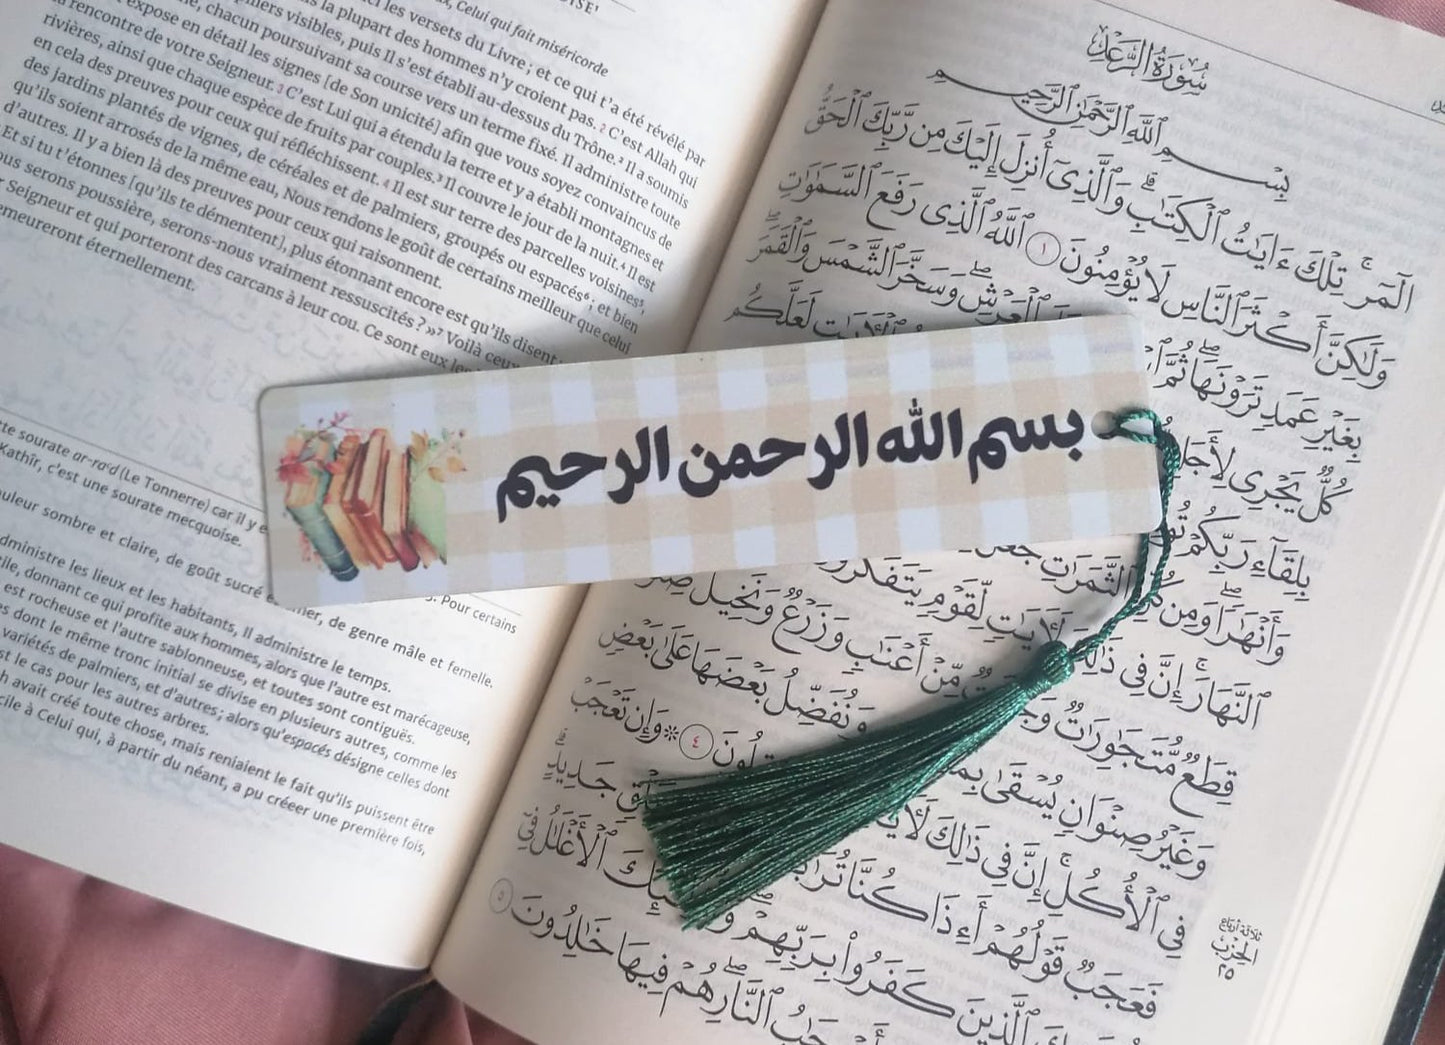 OISE¹
, Celui qui fait miséricorde
ci les versets du Livre ; et ce qui t'a été révélé par
la plupart des hommes n'y croient pas. 2 C'est Allah qui
piliers visibles, puis Il s'est établi au-dessus du Trône.² Il a soumis
, chacun poursuivant sa course vers un terme fixé. Il administre toute
expose en détail les signes [de Son unicité] afin que vous soyez convaincus de
rencontre de votre Seigneur. 3 C'est Lui qui a étendu la terre et y a établi montagnes et
rivières, ainsi que chaque espèce de fruits par couples.³ Il couvre le jour de la nuit.⁴ Il est
en cela des preuves pour ceux qui réfléchissent. 4 Il est sur terre des parcelles voisines⁵,
des jardins plantés de vignes, de céréales et de palmiers, groupés ou espacés⁶ ; et bien
qu'ils soient arrosés de la même eau, Nous rendons le goût de certains meilleur que celui
d'autres. Il y a bien là des preuves pour ceux qui raisonnent.
Et si tu t'étonnes [qu'ils te démentent], plus étonnant encore est qu'ils disent :
ous serons poussière, serons-nous vraiment ressuscités ? »⁷ Voilà ceux
Seigneur et qui porteront des carcans à leur cou. Ce sont eux les
emeureront éternellement.
tte sourate ar-ra'd (Le Tonnerre) car il y e
Kathîr, c'est une sourate mecquoise.
. Pour certains
ouleur sombre et claire, de goût sucré et amer, de genre mâle et femelle.
dministre les lieux et les habitants, Il administre le temps.
ile, donnant ce qui profite aux hommes, alors que l'autre est marécageuse,
est rocheuse et l'autre sablonneuse, et toutes sont contiguës.
s dont le même tronc initial se divise en plusieurs autres, comme les
variétés de palmiers, et d'autres ; alors qu'espacés désigne celles dont
st le cas pour les autres arbres.
h avait créé toute chose, mais reniaient le fait qu'ils puissent être
cile à Celui qui, à partir du néant, a pu créeer une première fois,
بسم الله الرحمن الرحيم
سُورَةُ الرَّعْدِ
بِسْمِ ٱللَّهِ ٱلرَّحْمَٰنِ ٱلرَّحِيمِ
الٓمٓر ۚ تِلْكَ ءَايَٰتُ ٱلْكِتَٰبِ ۗ وَٱلَّذِىٓ أُنزِلَ إِلَيْكَ مِن رَّبِّكَ ٱلْحَقُّ
وَلَٰكِنَّ أَكْثَرَ ٱلنَّاسِ لَا يُؤْمِنُونَ ١ ٱللَّهُ ٱلَّذِى رَفَعَ ٱلسَّمَٰوَٰتِ
بِغَيْرِ عَمَدٍ تَرَوْنَهَا ۖ ثُمَّ ٱلْعَرْشِ ۖ وَسَخَّرَ ٱلشَّمْسَ وَٱلْقَمَرَ ۖ
كُلٌّ يَجْرِى لِأَجَلٍ ٱلْءَايَٰتِ لَعَلَّكُم
بِلِقَآءِ رَبِّكُمْ
وَأَنْهَٰرًا ۖ وَمِن كُلِّ ٱلثَّمَرَٰتِ جَعَلَ
ٱلنَّهَارَ ۚ إِنَّ فِى ذَٰلِكَ لَءَايَٰتٍ لِّقَوْمٍ يَتَفَكَّرُونَ
قِطَعٌ مُّتَجَٰوِرَٰتٌ مِّنْ أَعْنَٰبٍ وَزَرْعٌ وَنَخِيلٌ
وَغَيْرُ صِنْوَانٍ يُسْقَىٰ بِمَآءٍ وَنُفَضِّلُ بَعْضَهَا عَلَىٰ بَعْضٍ
فِى ٱلْأُكُلِ ۚ إِنَّ فِى ذَٰلِكَ لَءَايَٰتٍ ٤ ۞ وَإِن تَعْجَبْ
فَعَجَبٌ قَوْلُهُمْ أَءِذَا كُنَّا تُرَٰبًا جَدِيدٍ
ٱلَّذِينَ كَفَرُوا۟ بِرَبِّهِمْ ۖ ٱلْأَغْلَٰلُ فِىٓ
ٱلنَّارِ ۖ هُمْ فِيهَا خَٰلِدُونَ ٥
ثلاثة أرباع
الحزب
٢٥